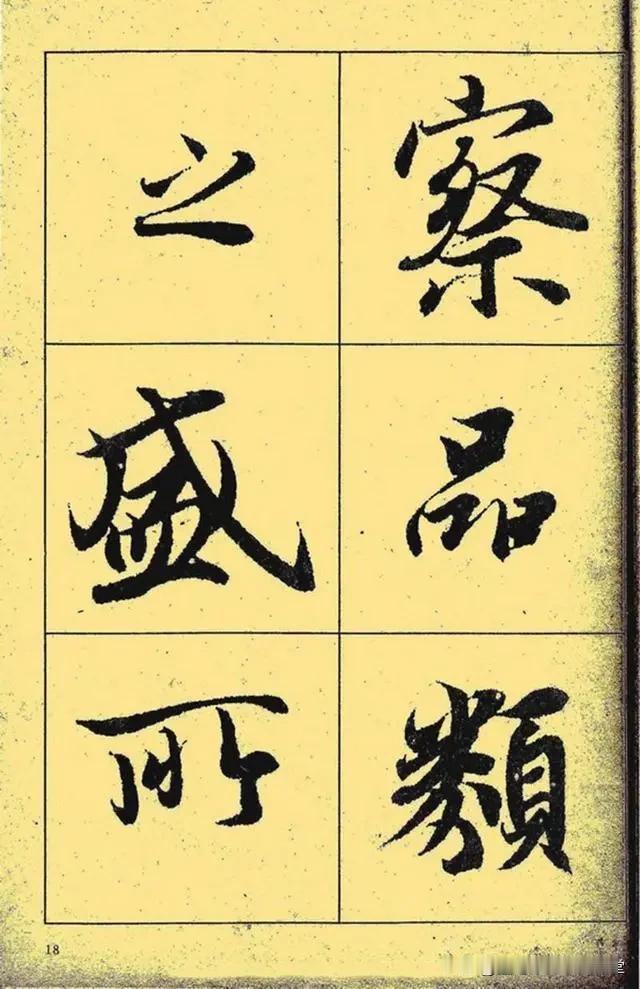 察品類
之盛所
18